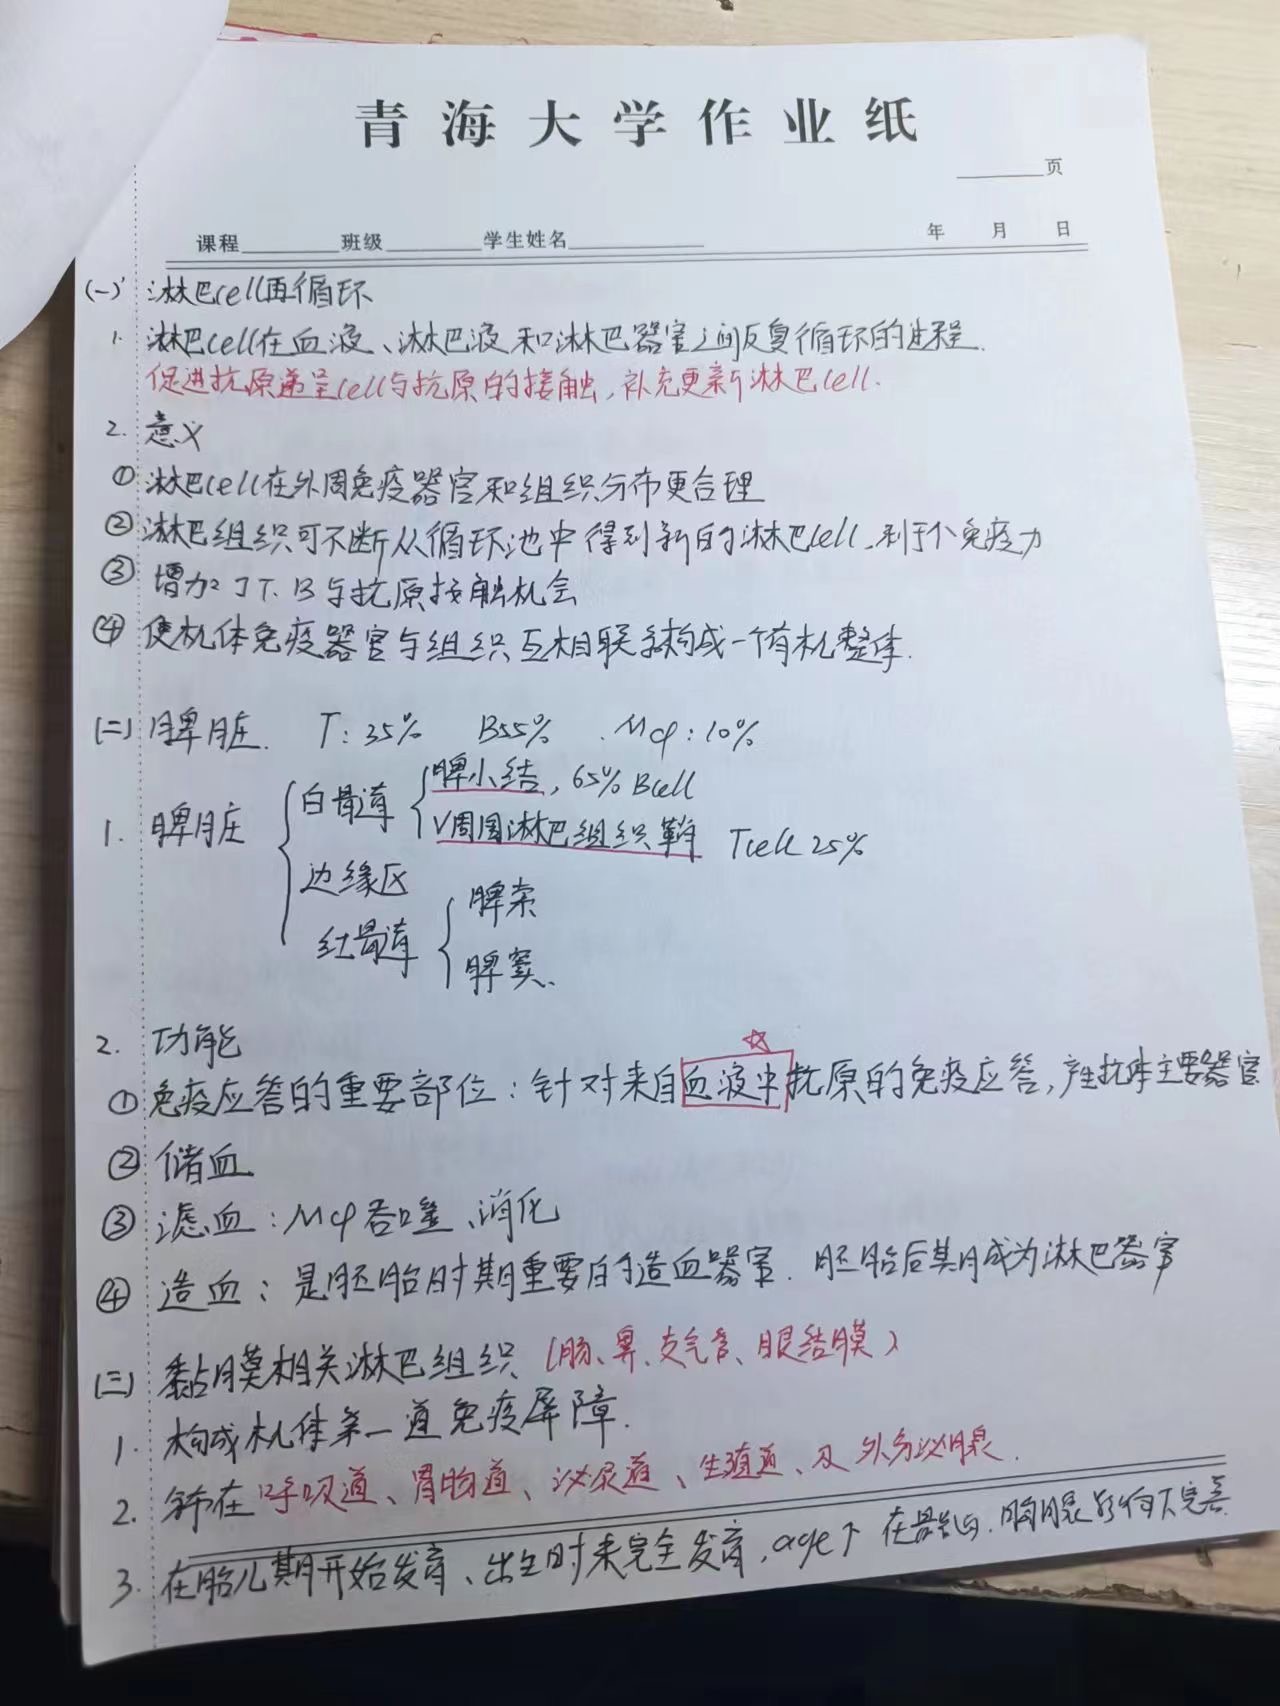 青海大学作业纸
______页
课程________班级________学生姓名___________ 年 月 日
(一) 淋巴cell再循环
1. 淋巴cell在血液、淋巴液和淋巴器官之间反复循环的过程.
促进抗原递呈cell与抗原的接触,补充更新淋巴cell.
2. 意义
① 淋巴cell在外周免疫器官和组织分布更合理
② 淋巴组织可不断从循环池中得到新的淋巴cell、利于个免疫力
③ 增加了T、B与抗原接触机会
④ 使机体免疫器官与组织互相联系构成一个有机整体.
(二) 脾脏. T: 35% B55% . Mφ: 10%
1. 脾脏
白骨道 脾小结, 65% Bcell
V周围淋巴组织鞘 Tcell 25%
边缘区
红骨道 脾索
脾窦.
2. 功能
① 免疫应答的重要部位: 针对来自血液中抗原的免疫应答, 产生抗体主要器官
② 储血
③ 滤血: Mφ吞噬、消化
④ 造血: 是胚胎时期重要的造血器官. 胚胎后期成为淋巴器官
(三) 黏膜相关淋巴组织 (肠、鼻、支气管、眼结膜)
1. 构成机体第一道免疫屏障.
2. 分布在呼吸道、胃肠道、泌尿道、生殖道、及外分泌腺.
3. 在胎儿期开始发育、出生时未完全发育, age↑ 在 胸腺 完善